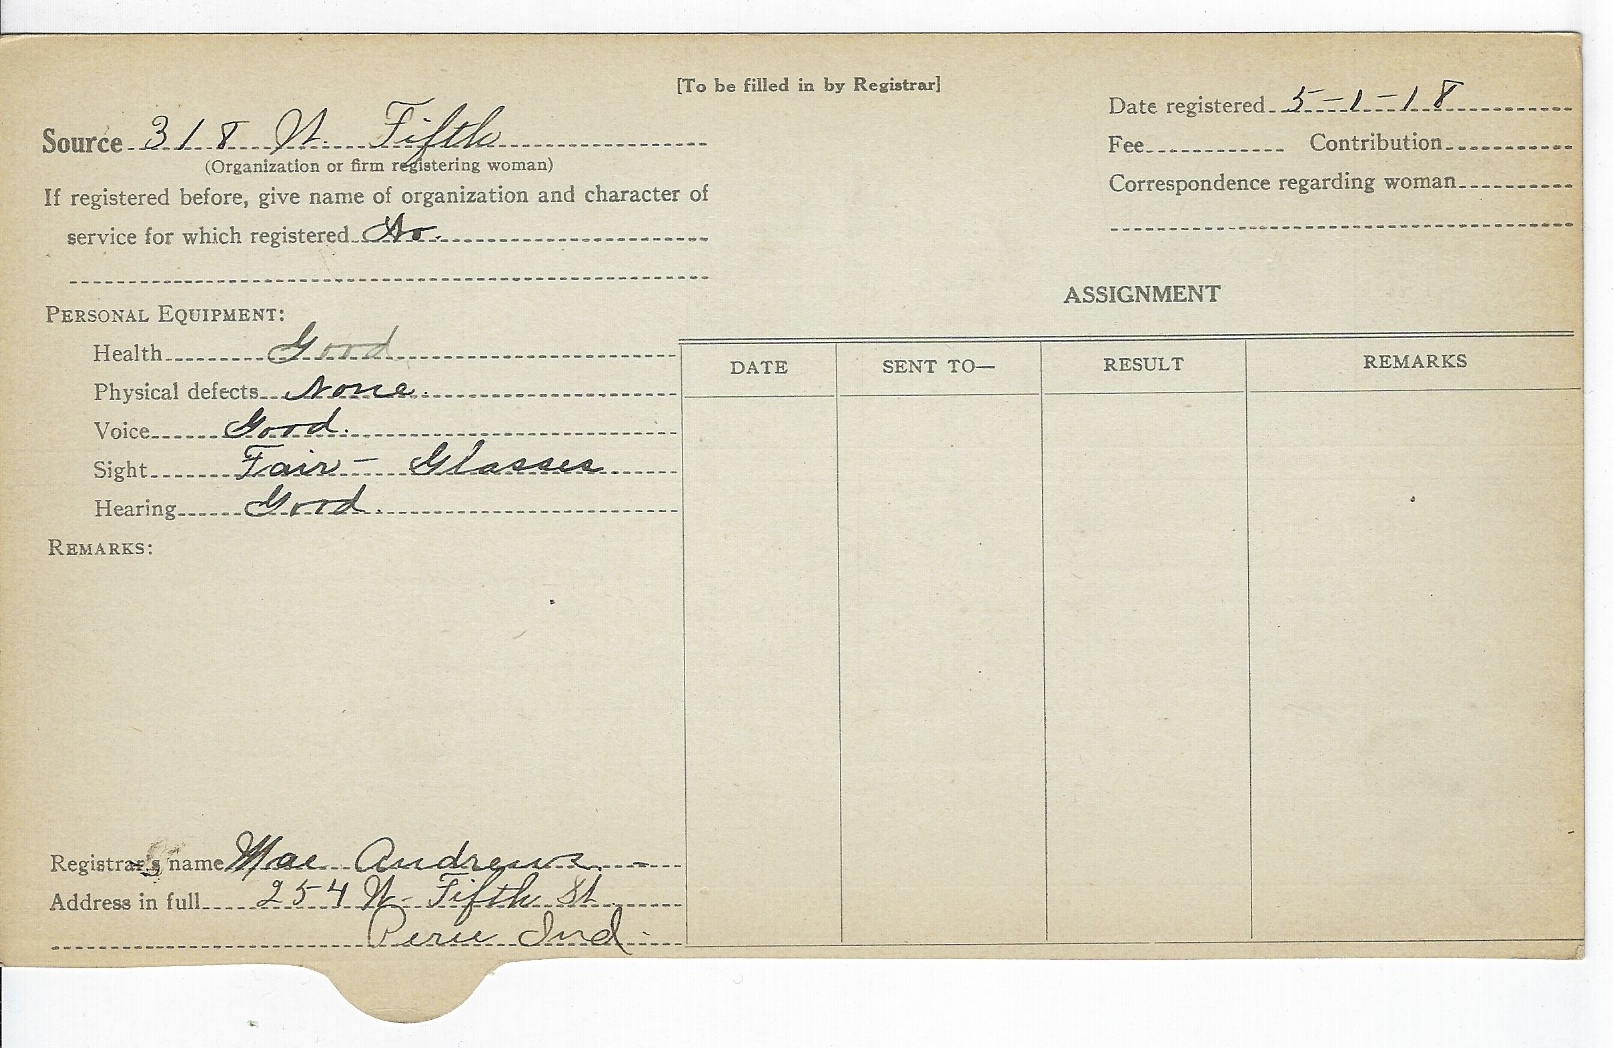 [To be filled in by Registrar]
Source 318 W. Fifth
(Organization or firm registering woman)
If registered before, give name of organization and character of
service for which registered No.
Date registered 5-1-18
Fee Contribution
Correspondence regarding woman
PERSONAL EQUIPMENT:
Health Good
Physical defects None.
Voice Good.
Sight Fair - Glasses
Hearing Good.
REMARKS:
ASSIGNMENT
DATE SENT TO— RESULT REMARKS
Registrar's name Mae Andrews. -
Address in full 254 W- Fifth St.
Peru Ind.